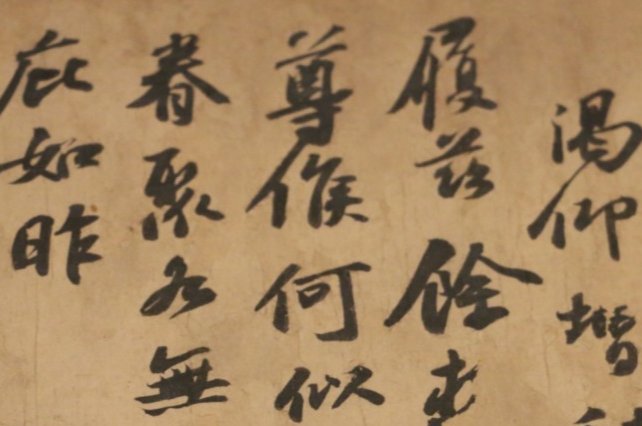 渴仰增
履茲餘
尊候何似
眷聚各無
庇如昨